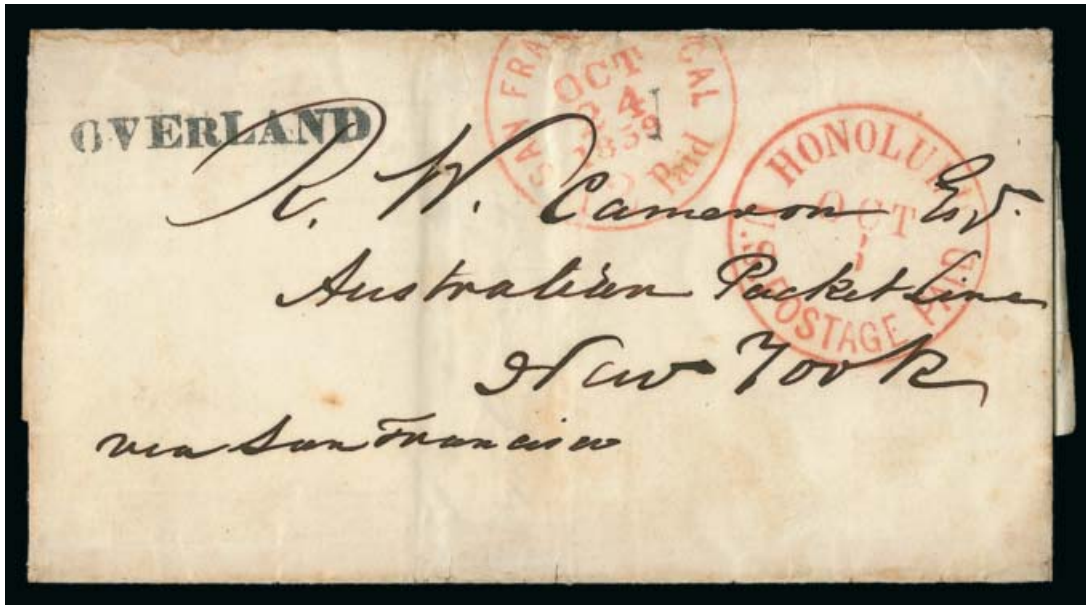 OVERLAND
SAN FRAN CAL
OCT
24
1859
Paid
HONOLULU
OCT
U.S. POSTAGE PAID
R. W. Cameron Esqr.
Australian Packet Line
New York
via San Francisco